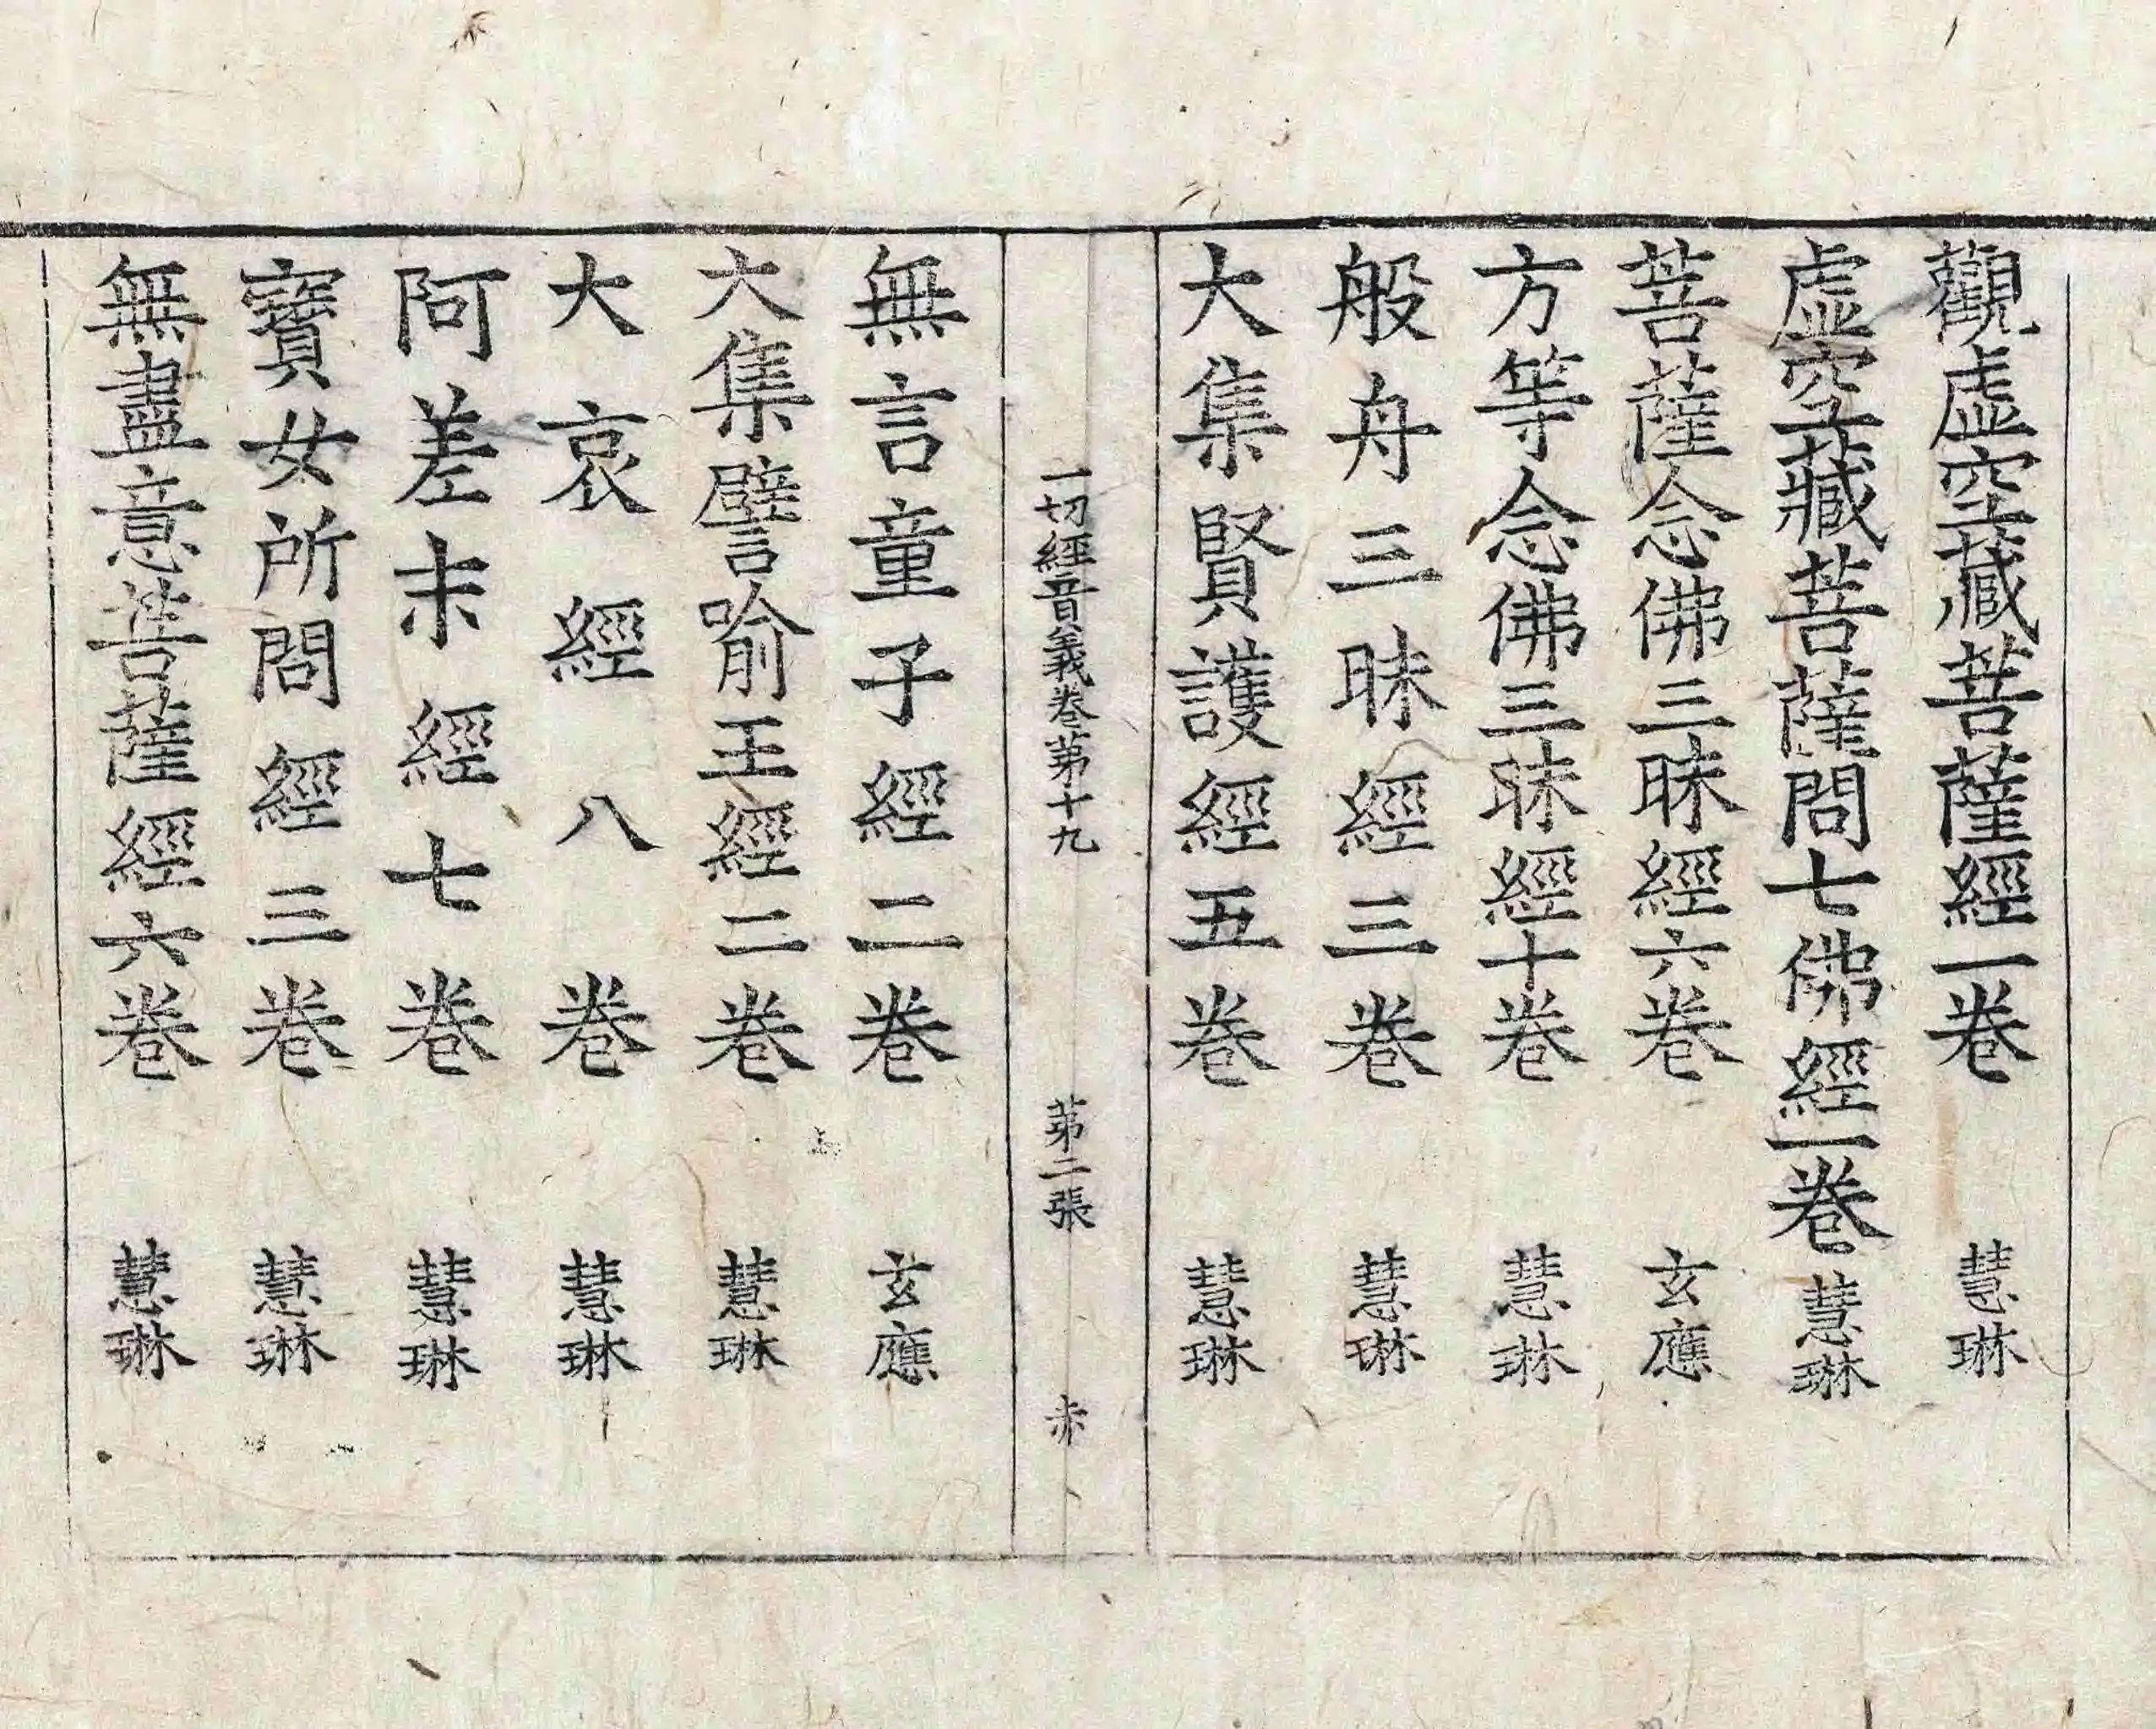 觀虛空藏菩薩經一卷 慧琳
虛空藏菩薩問七佛經一卷 慧琳
菩薩念佛三昧經六卷 玄應
方等念佛三昧經十卷 慧琳
般舟三昧經三卷 慧琳
大集賢護經五卷 慧琳
一切經音義卷苐十九 苐二張 赤
無言童子經二卷 玄應
大集譬喻王經二卷 慧琳
大哀經八卷 慧琳
阿差末經七卷 慧琳
寶女所問經三卷 慧琳
無盡意菩薩經六卷 慧琳